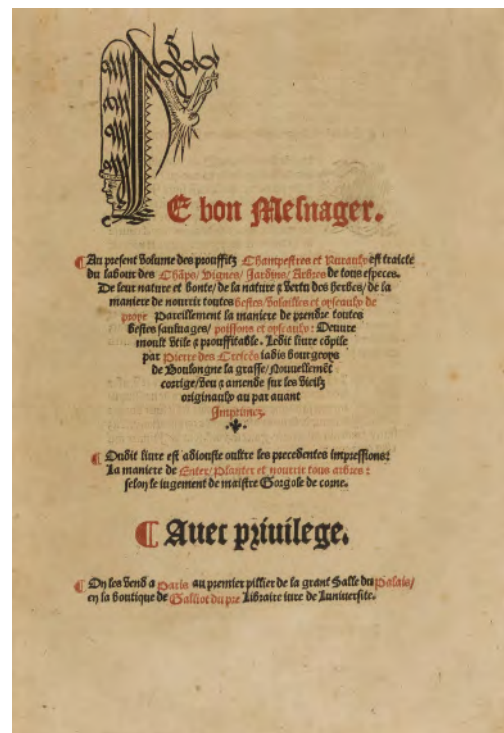 LE bon Mesnager.
¶ Au present volume des prouffitz Champestres et Ruraulx est traicte
du labour des Chãps/ Vignes/ Jardins/ Arbres de tous especes.
De leur nature et bonte/ de la nature ⁊ vertu des herbes/ de la
maniere de nourrir toutes bestes/ volailles et oyseaulx de
proye Pareillement la maniere de prendre toutes
bestes saulvages/ poissons et oyseaulx: Oeuure
moult vtile ⁊ prouffitable. Ledit liure cõpile
par Pierre des Crescẽs iadis bourgeoys
de Boulongne la grasse/ Nouuellemẽt
corrige/ veu ⁊ amende sur les vieilz
originaulx au par auant
Imprimez.
¶ Oudit liure est adiouste oultre les precedentes impressions:
La maniere de Enter/ Planter et nourrir tous arbres:
selon le iugement de maistre Gorgole de corne.
¶ Auec priuilege.
¶ On les vend a Paris au premier pillier de la grant Salle du Palais/
en la boutique de Galliot du pre Libraire iure de Luniuersite.